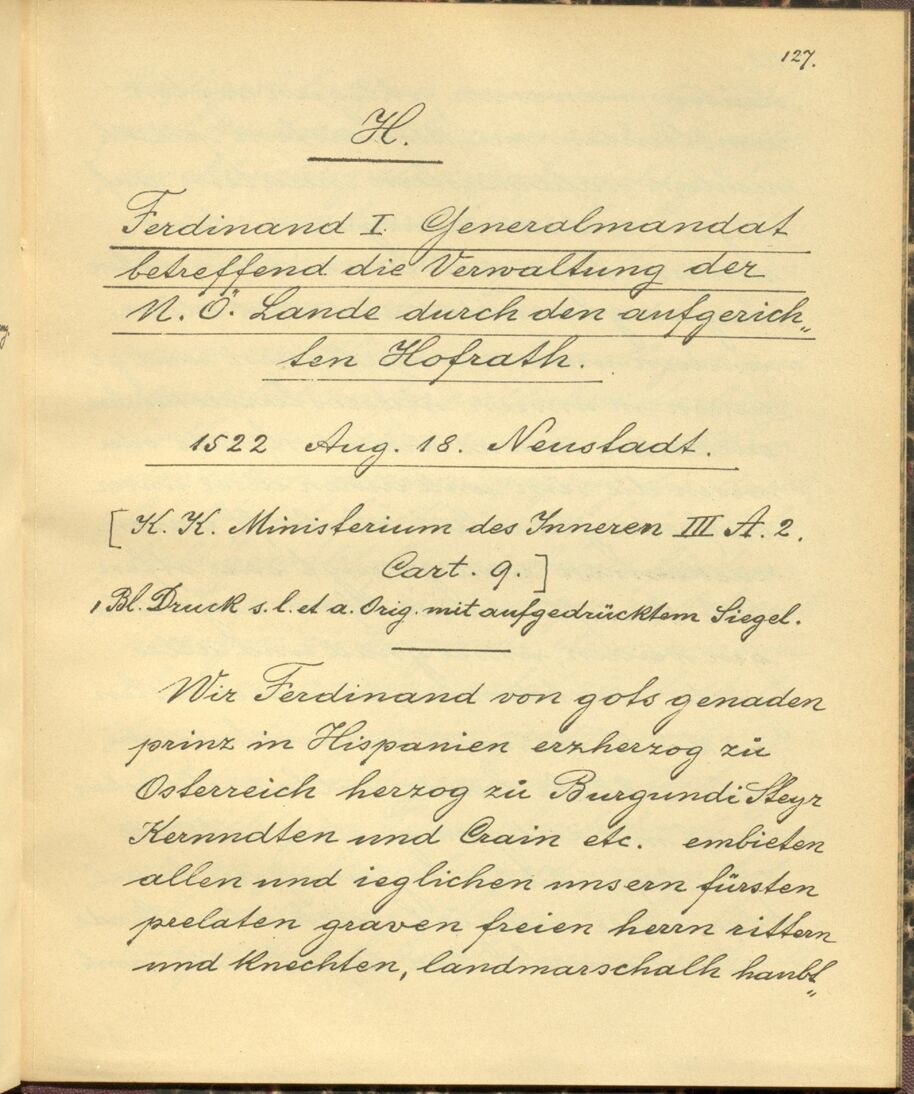 127.
H.
Ferdinand I. Generalmandat
betreffend die Verwaltung der
N. Ö. Lande durch den aufgerich„
ten Hofrath.
1522 Aug. 18. Neustadt.
[K. K. Ministerium des Inneren III A. 2.
Cart. 9.]
1 Bl. Druck s. l. et a. Orig. mit aufgedrücktem Siegel.
Wir Ferdinand von gots genaden
prinz in Hispanien erzherzog zů
Osterreich herzog zů Burgundi Steyr
Kernndten und Crain etc. embieten
allen und ieglichen unsern fürsten
prelaten graven freien herrn rittern
und knechten, landmarschalh haubt„